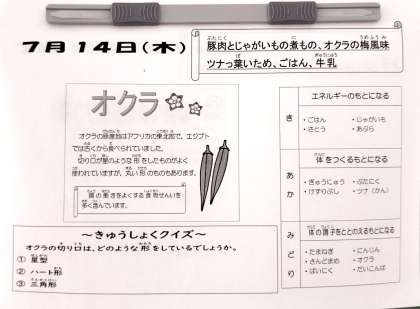 7月14日(木)
豚肉とじゃがいもの煮もの、オクラの梅風味
ツナっ葉いため、ごはん、牛乳
オクラ
オクラの原産地はアフリカの東北部で、エジプト
では古くから食べられていました。
切り口が星のような形をしたものがよく
使われていますが、丸い形のものもあります。
腸の働きをよくする食物せんいを
多く含んでいます。
~きゅうしょくクイズ~
オクラの切り口は、どのような形をしているでしょうか。
① 星型
② ハート形
③ 三角形
き
エネルギーのもとになる
・ごはん ・じゃがいも
・さとう ・あぶら
あか
体をつくるもとになる
・ぎゅうにゅう ・ぶたにく
・けずりぶし ・ツナ(かん)
みどり
体の調子をととのえるもとになる
・たまねぎ ・にんじん
・さんどまめ ・オクラ
・ばいにく ・だいこんば